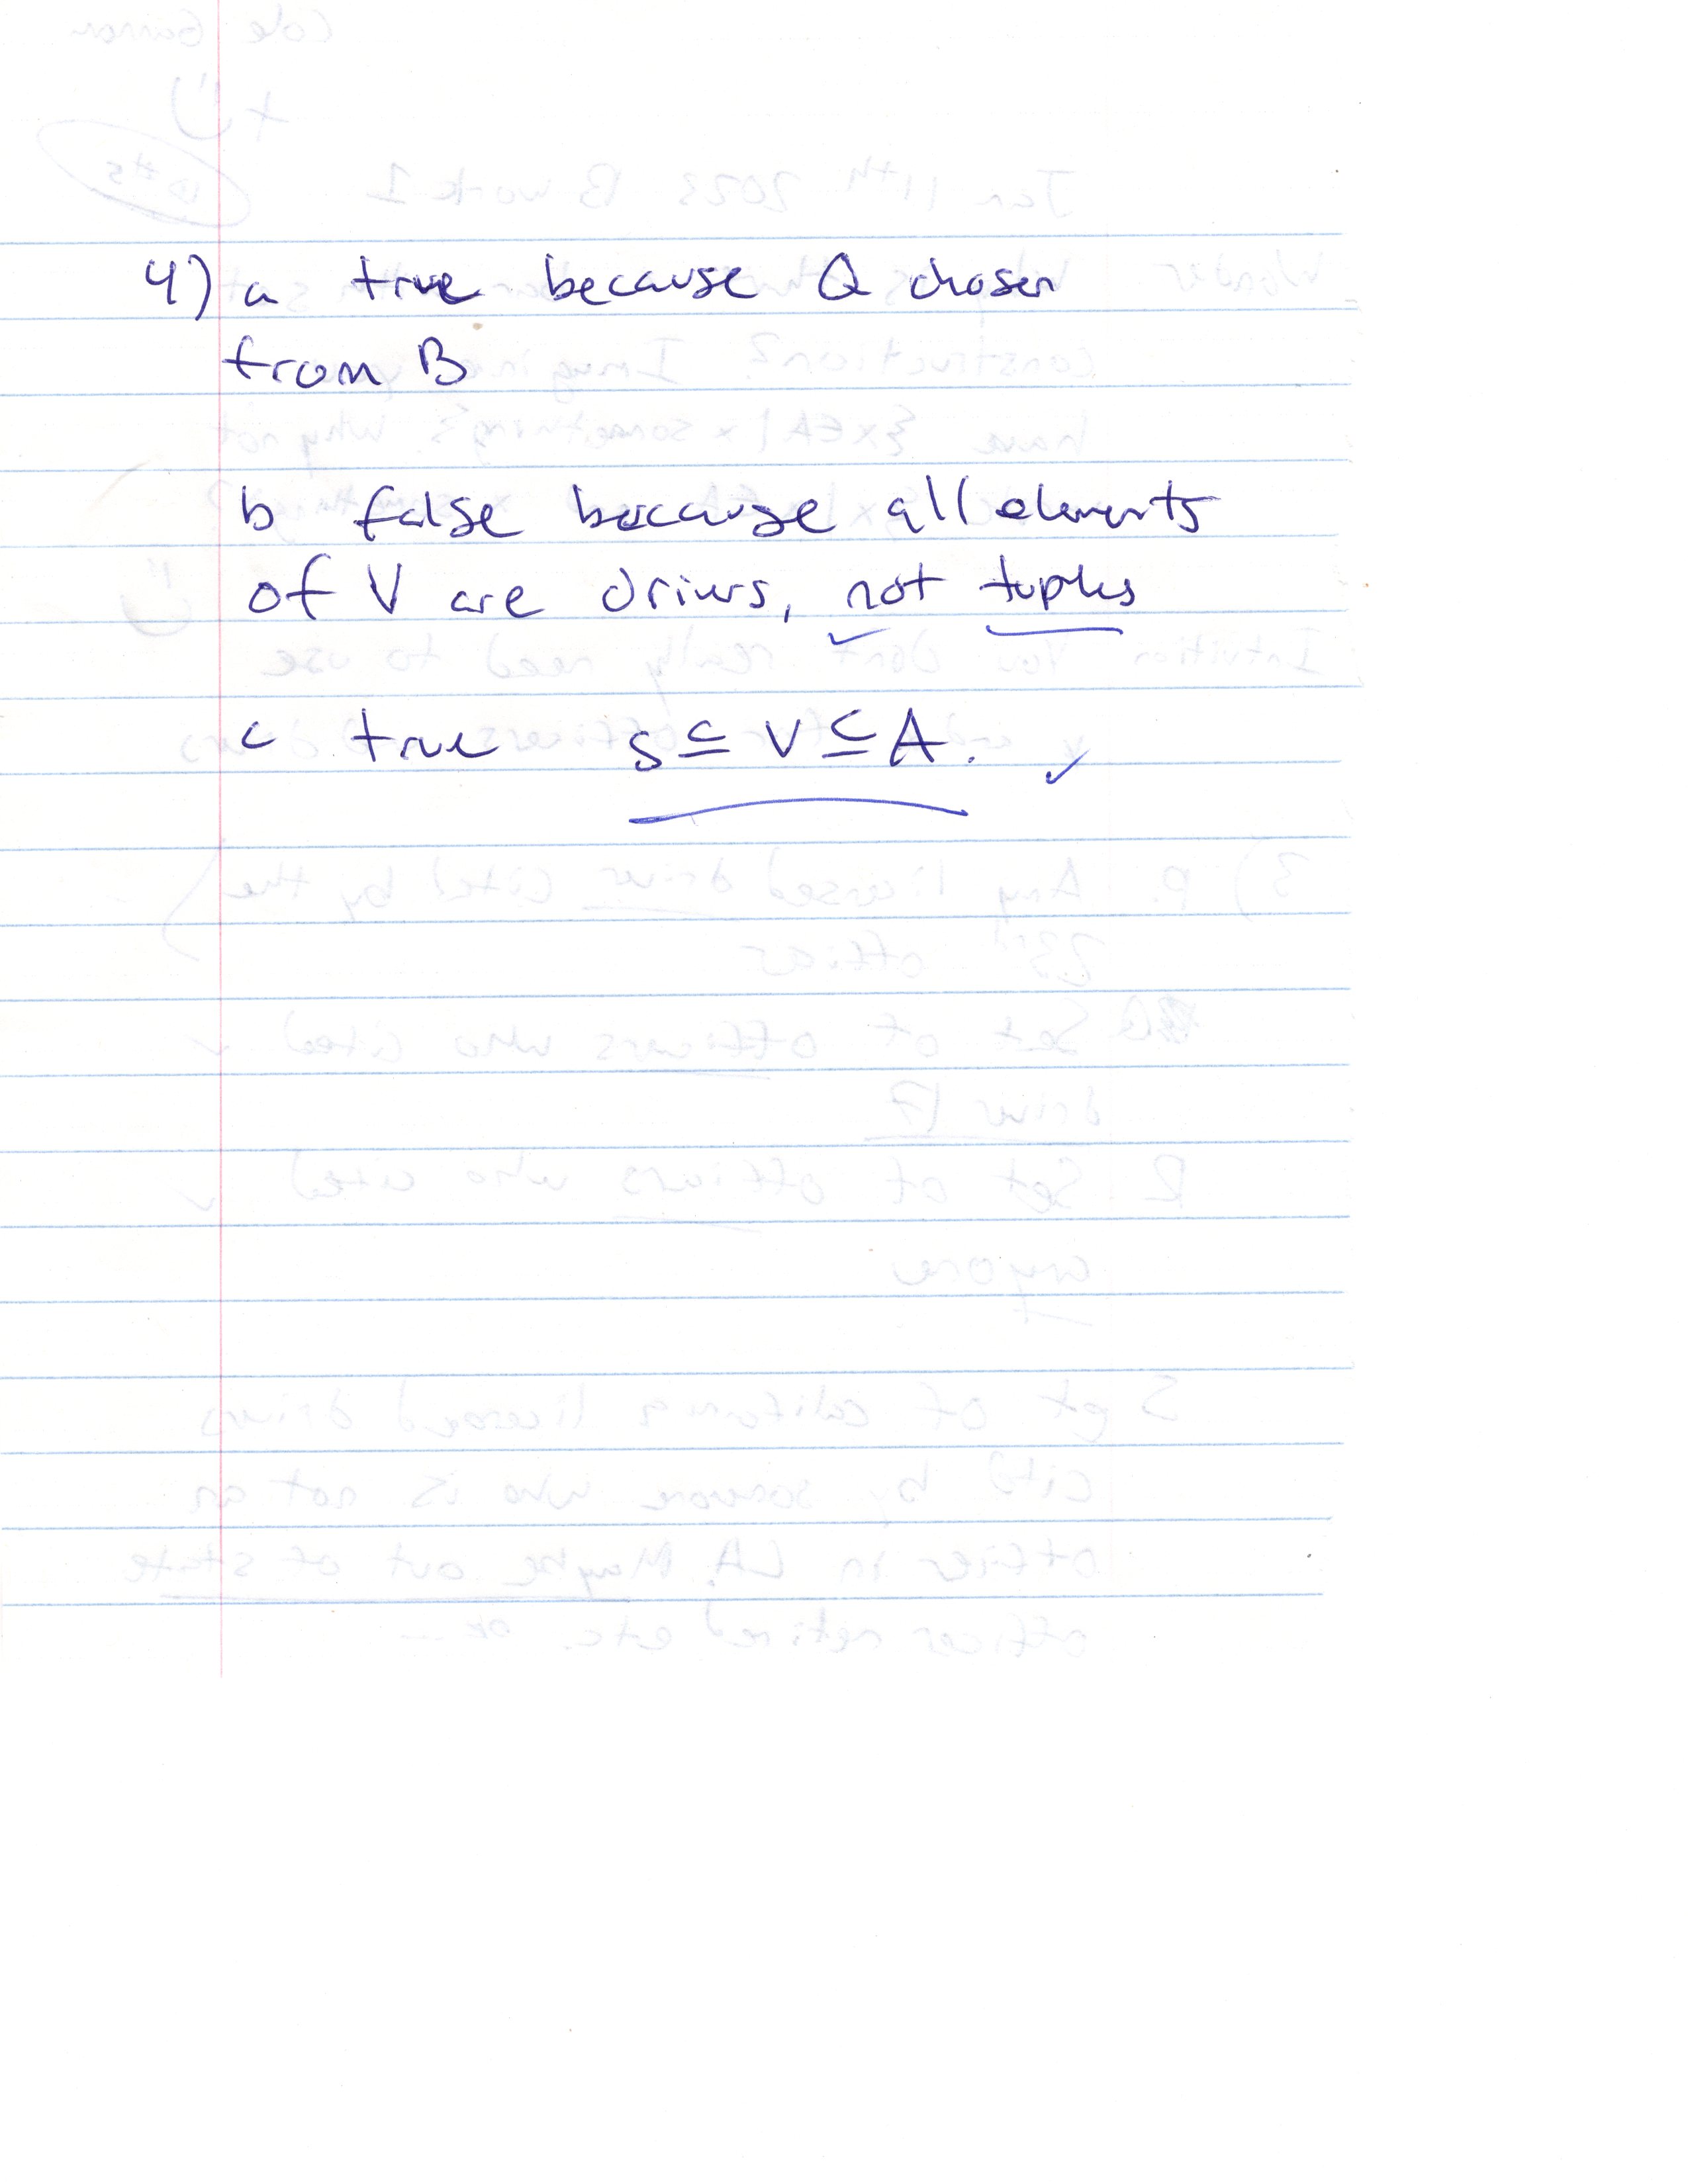 4) a true because Q chosen
from B
b false because all elements
of V are drivers, not tuples
c true S ⊆ V ⊆ A.